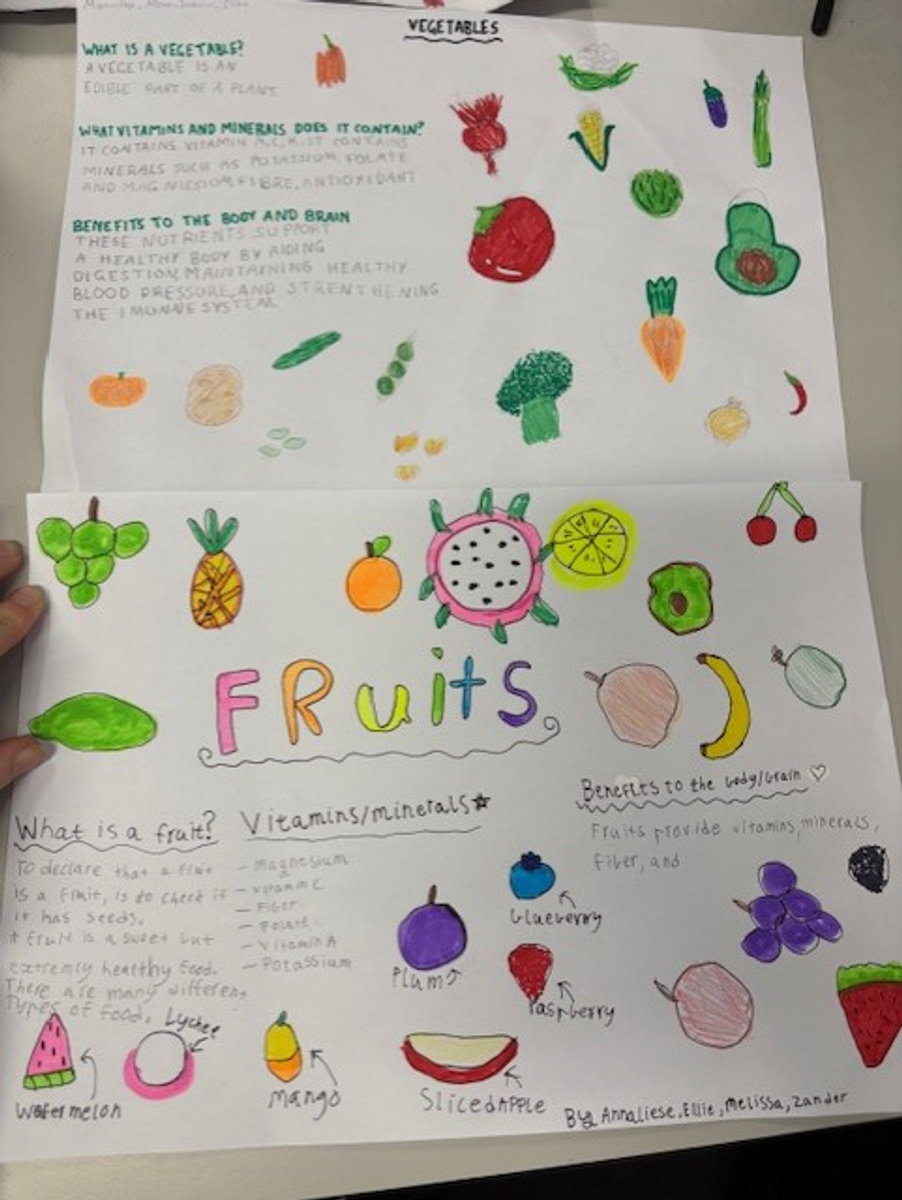 VEGETABLES
WHAT IS A VEGETABLE?
A VEGETABLE IS AN
EDIBLE PART OF A PLANT
WHAT VITAMINS AND MINERALS DOES IT CONTAIN?
IT CONTAINS VITAMIN A,C,K. IT CONTAINS
MINERALS SUCH AS POTASSIUM, FOLATE
AND MAGNIESIUM, FIBRE, ANTIOXIDANT
BENEFITS TO THE BODY AND BRAIN
THESE NUTRIENTS SUPPORT
A HEALTHY BODY BY AIDING
DIGESTION, MAINTAINING HEALTHY
BLOOD PRESSURE, AND STRENTHENING
THE IMUNNE SYSTEM
FRuits
What is a fruit?
To declare that a fruit
is a fruit, is to check if
it has seeds.
A fruit is a sweet but
extremly healthy food.
There are many different
Types of food.
Vitamins/minerals
- Magnesium
- vitamin C
- Fiber
- Folate
- Vitamin A
- Potassium
Benefits to the body/brain
Fruits provide vitamins, minerals,
fiber, and
Blueberry
Plum
raspberry
Lychee
Watermelon
Mango
Sliced APPLE
By Annaliese, Ellie, Melissa, Zander